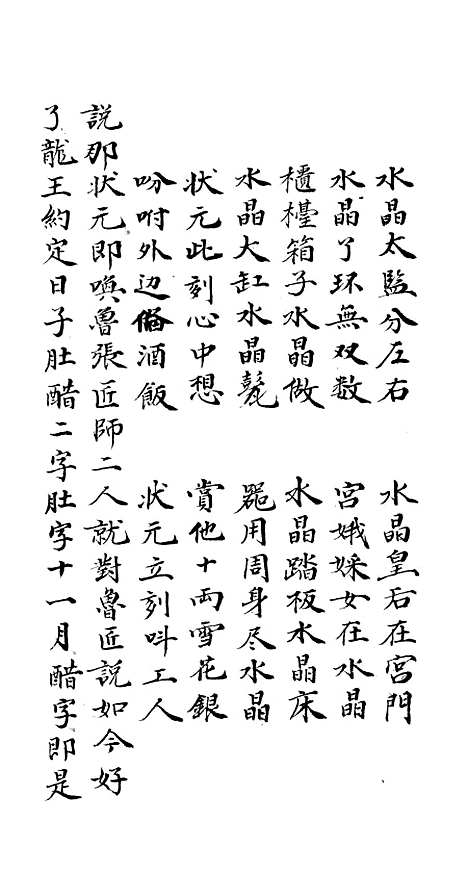 水晶太監分左右　水晶皇后在宮門
水晶丫环無双数　宮娥婇女在水晶
櫃檯箱子水晶做　水晶踏板水晶床
水晶大缸水晶甏　器用周身尽水晶
状元此刻心中想　賞他十両雪花銀
吩咐外边偹酒飯　状元立刻呌工人
説那状元即喚魯張匠師二人就對魯匠説如今好
了龍王約定日子肚醋二字肚字十一月醋字即是